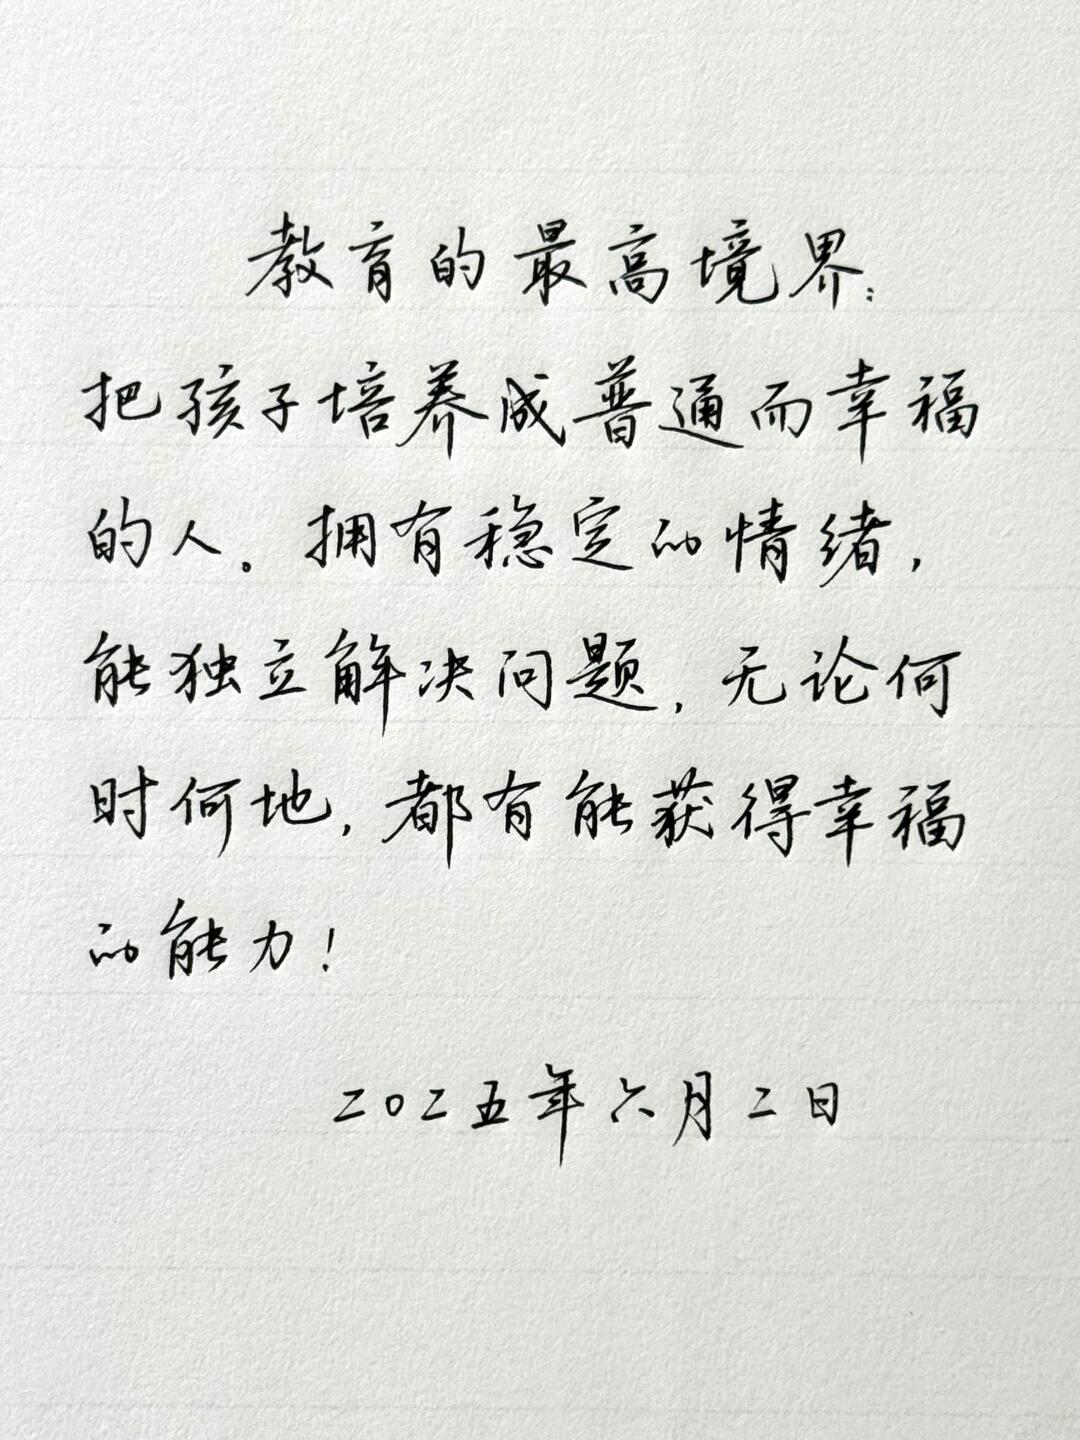 教育的最高境界：
把孩子培养成普通而幸福
的人。拥有稳定的情绪，
能独立解决问题，无论何
时何地，都有能获得幸福
的能力！
二〇二五年六月二日